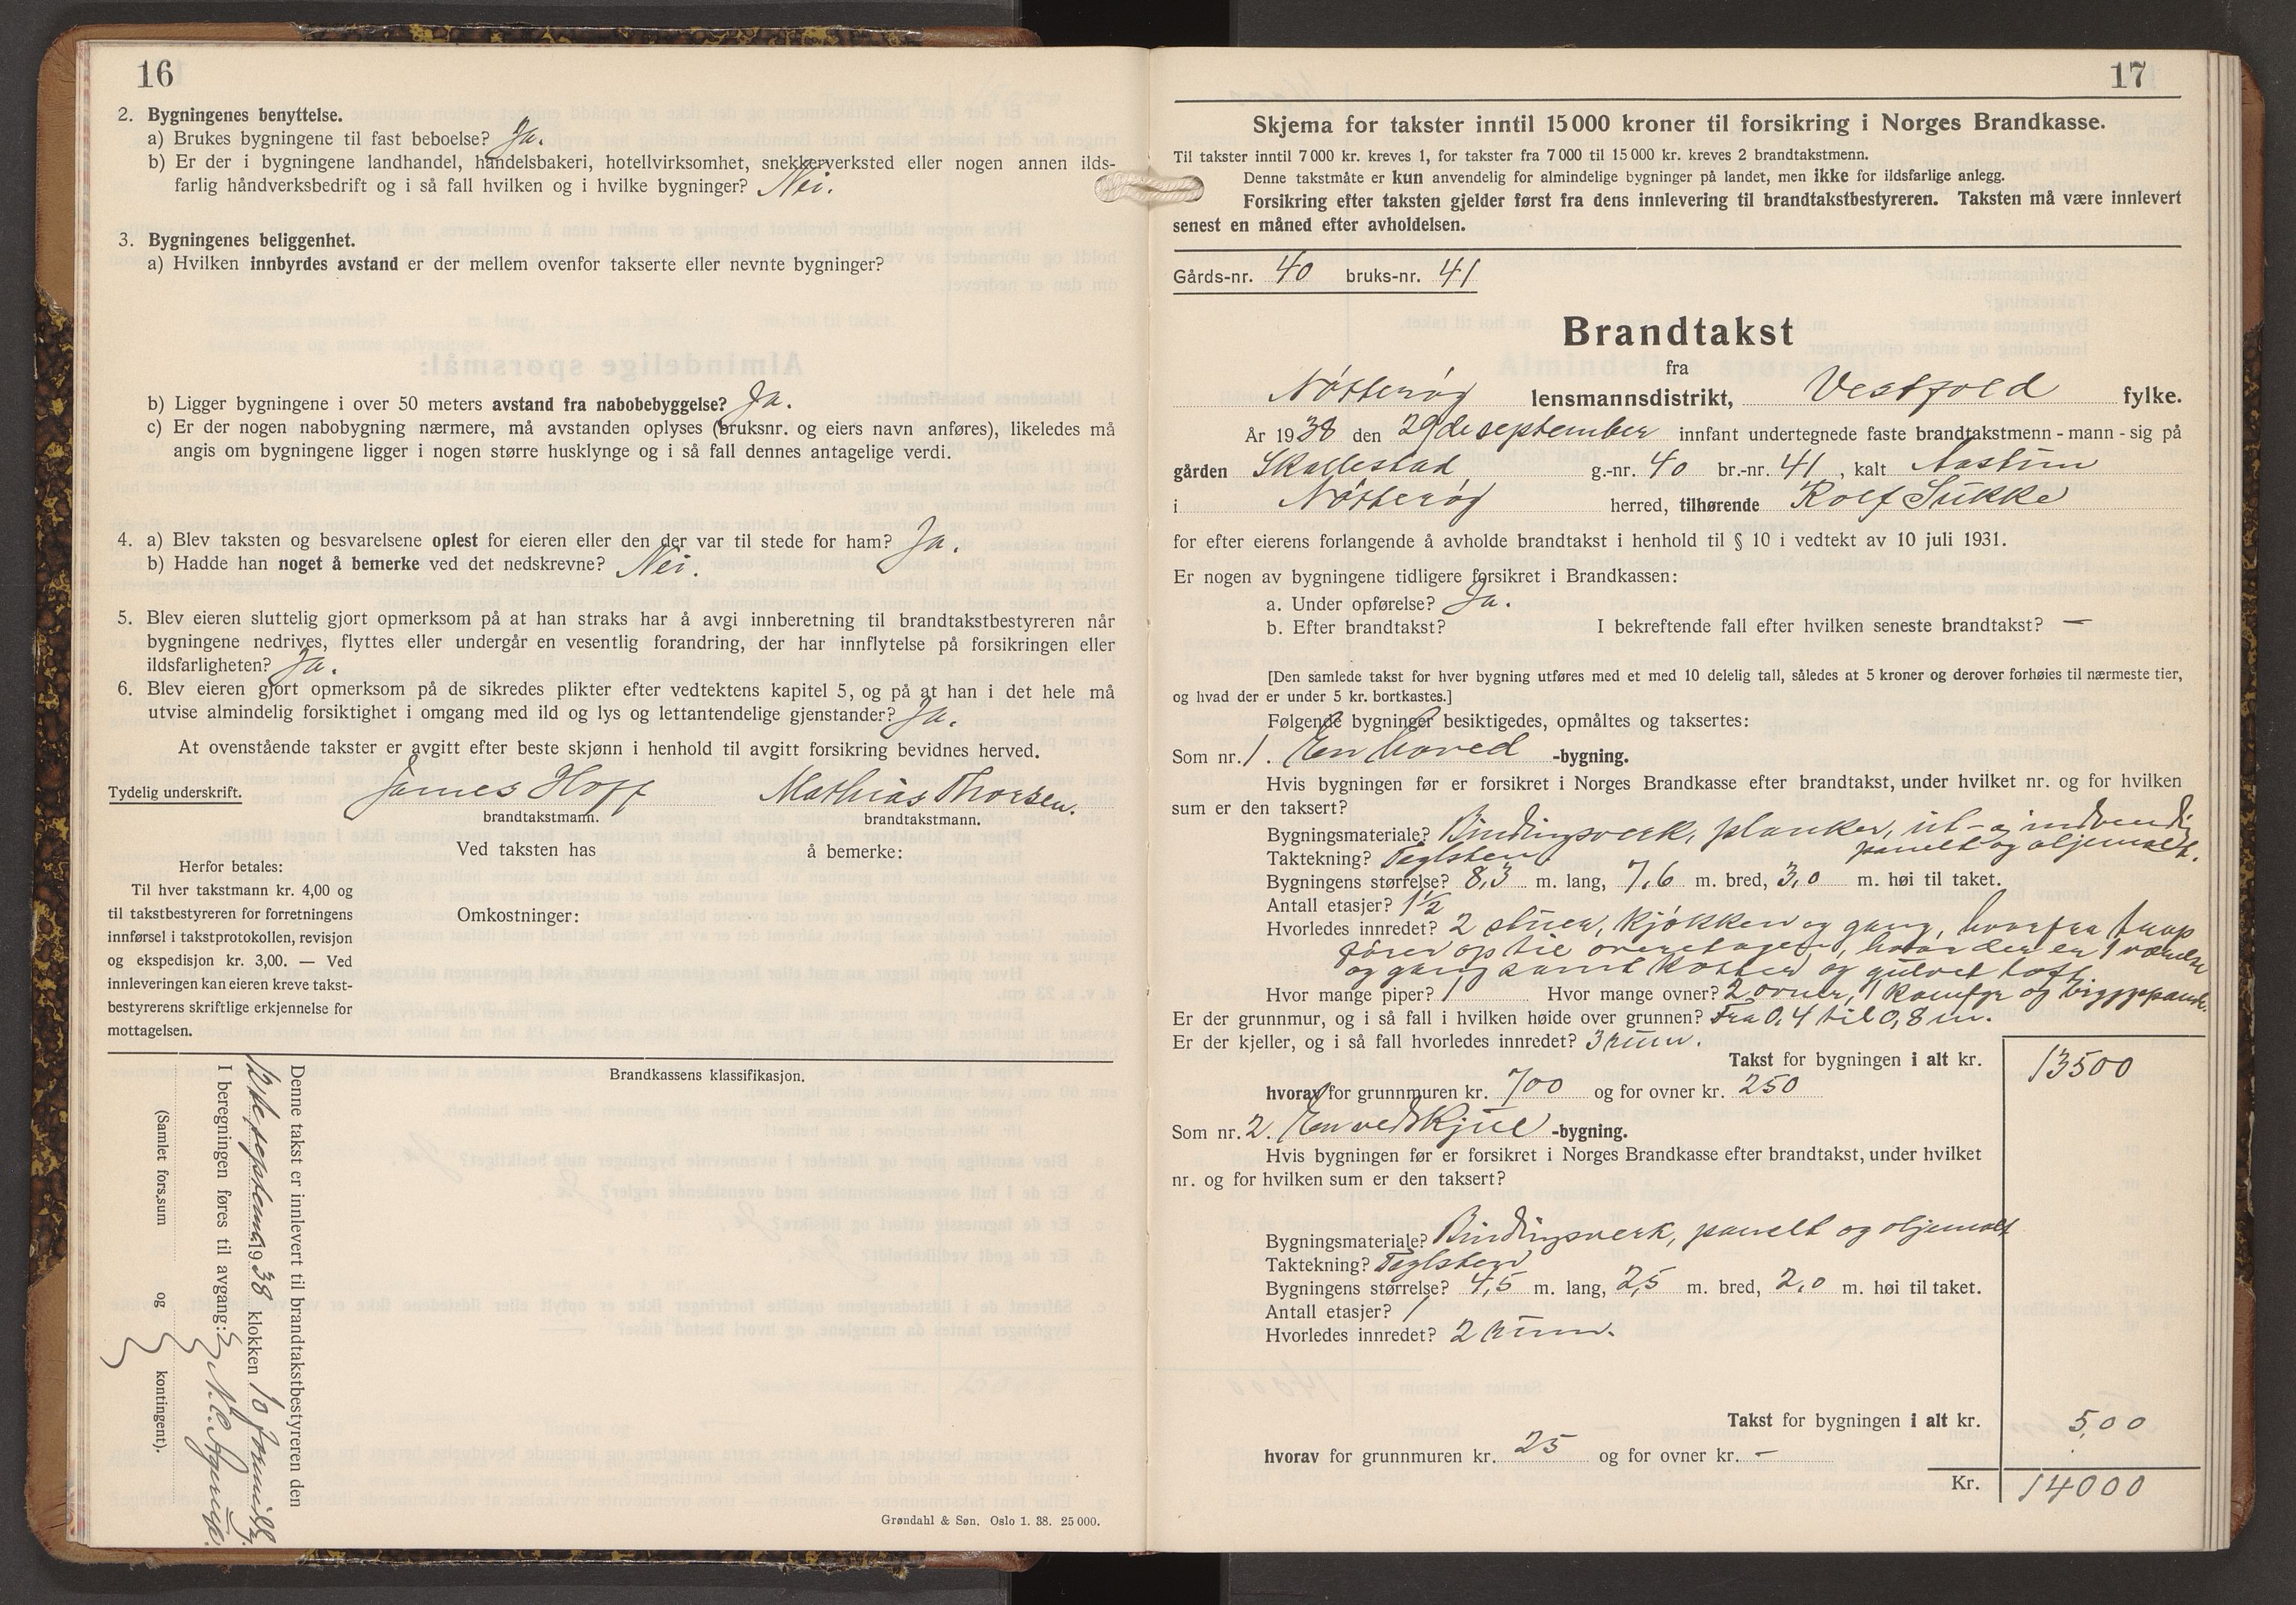 16
2. Bygningenes benyttelse.
a) Brukes bygningene til fast beboelse? Ja.
b) Er der i bygningene landhandel, handelsbakeri, hotellvirksomhet, snekkerverksted eller nogen annen ilds-
farlig håndverksbedrift og i så fall hvilken og i hvilke bygninger? Nei.
3. Bygningenes beliggenhet.
a) Hvilken innbyrdes avstand er der mellem ovenfor takserte eller nevnte bygninger?
b) Ligger bygningene i over 50 meters avstand fra nabobebyggelse? Ja.
c) Er der nogen nabobygning nærmere, må avstanden oplyses (bruksnr. og eiers navn anføres), likeledes må
angis om bygningene ligger i nogen større husklynge og i så fall dennes antagelige verdi.
4. a) Blev taksten og besvarelsene oplest for eieren eller den der var til stede for ham? Ja.
b) Hadde han noget å bemerke ved det nedskrevne? Nei.
5. Blev eieren sluttelig gjort opmerksom på at han straks har å avgi innberetning til brandtakstbestyreren når
bygningene nedrives, flyttes eller undergår en vesentlig forandring, der har innflytelse på forsikringen eller
ildsfarligheten? Ja.
6. Blev eieren gjort opmerksom på de sikredes plikter efter vedtektens kapitel 5, og på at han i det hele må
utvise almindelig forsiktighet i omgang med ild og lys og lettantendelige gjenstander? Ja.
At ovenstående takster er avgitt efter beste skjønn i henhold til avgitt forsikring bevidnes herved.
Tydelig underskrift. James Hoff Mathias Thorsen.
brandtakstmann. brandtakstmann.
Ved taksten has å bemerke:
Herfor betales:
Til hver takstmann kr. 4,00 og
til takstbestyreren for forretningens
innførsel i takstprotokollen, revisjon
og ekspedisjon kr. 3,00. — Ved
innleveringen kan eieren kreve takst-
bestyrerens skriftlige erkjennelse for
mottagelsen.
Omkostninger:
Brandkassens klassifikasjon.
Denne takst er innlevert til brandtakstbestyreren den
september 1938 klokken 10 formidd.
I beregningen føres til avgang:
(Samlet fors.sum og kontingent).
Grøndahl & Søn. Oslo 1. 38. 25 000.
17
Skjema for takster inntil 15 000 kroner til forsikring i Norges Brandkasse.
Til takster inntil 7 000 kr. kreves 1, for takster fra 7 000 til 15 000 kr. kreves 2 brandtakstmenn.
Denne takstmåte er kun anvendelig for almindelige bygninger på landet, men ikke for ildsfarlige anlegg.
Forsikring efter taksten gjelder først fra dens innlevering til brandtakstbestyreren. Taksten må være innlevert
senest en måned efter avholdelsen.
Gårds-nr. 40 bruks-nr. 41
Brandtakst
fra
Nøtterøy lensmannsdistrikt, Vestfold fylke.
År 1938 den 29de september innfant undertegnede faste brandtakstmenn - mann - sig på
gården Skallestad g.-nr. 40 br.-nr. 41, kalt Aastun
i Nøtterøy herred, tilhørende Rolf Sukke
for efter eierens forlangende å avholde brandtakst i henhold til § 10 i vedtekt av 10 juli 1931.
Er nogen av bygningene tidligere forsikret i Brandkassen:
a. Under opførelse? Ja.
b. Efter brandtakst? I bekreftende fall efter hvilken seneste brandtakst? —
[Den samlede takst for hver bygning utføres med et med 10 delelig tall, således at 5 kroner og derover forhøies til nærmeste tier,
og hvad der er under 5 kr. bortkastes.]
Følgende bygninger besiktigedes, opmåltes og taksertes:
Som nr. 1. En hoved -bygning.
Hvis bygningen før er forsikret i Norges Brandkasse efter brandtakst, under hvilket nr. og for hvilken
sum er den taksert?
Bygningsmateriale? Bindingsverk, planker, ut- og indvendig
panelt og oljemalt.
Taktekning? Teglsten.
Bygningens størrelse? 8,3 m. lang, 7,6 m. bred, 3,0 m. høi til taket.
Antall etasjer? 1½
Hvorledes innredet? 2 stuer, kjøkken og gang, hvorfra trap
fører op til overetagen, hvor der er 1 værelse
og gang samt kotter og gulvet loft.
Hvor mange piper? 1 Hvor mange ovner? 2 ovner, 1 komfyr og bryggepande.
Er der grunnmur, og i så fall i hvilken høide over grunnen? Fra 0,4 til 0,8 m.
Er der kjeller, og i så fall hvorledes innredet? 3 rum.
Takst for bygningen i alt kr. 13500
hvorav for grunnmuren kr. 700 og for ovner kr. 250
Som nr. 2. En vedskjul -bygning.
Hvis bygningen før er forsikret i Norges Brandkasse efter brandtakst, under hvilket
nr. og for hvilken sum er den taksert?
Bygningsmateriale? Bindingsverk, panelt og oljemalt
Taktekning? Teglsten
Bygningens størrelse? 4,5 m. lang, 2,5 m. bred, 2,0 m. høi til taket.
Antall etasjer? 1
Hvorledes innredet? 2 rum.
Takst for bygningen i alt kr. 500
hvorav for grunnmuren kr. 25 og for ovner kr. —
Kr. 14000